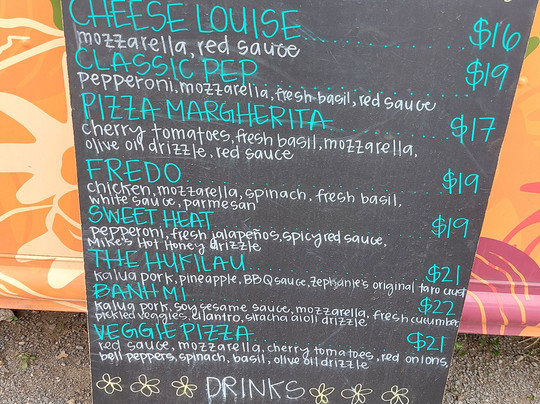 CHEESE LOUISE $16
mozzarella, red sauce
CLASSIC PEP $19
pepperoni, mozzarella, fresh basil, red sauce
PIZZA MARGHERITA $17
cherry tomatoes, fresh basil, mozzarella,
olive oil drizzle, red sauce
FREDO $19
chicken, mozzarella, spinach, fresh basil,
white sauce, parmesan
SWEET HEAT $19
pepperoni, fresh jalapeños, spicy red sauce,
Mike's Hot Honey drizzle
THE HUKILAU $21
kalua pork, pineapple, BBQ sauce, Zephanie's original taro crust
BANH MI $22
kalua pork, soy sesame sauce, mozzarella, fresh cucumber
pickled veggies, cilantro, siracha aioli drizzle
VEGGIE PIZZA $21
red sauce, mozzarella, cherry tomatoes, red onions,
bell peppers, spinach, basil, olive oil drizzle
DRINKS